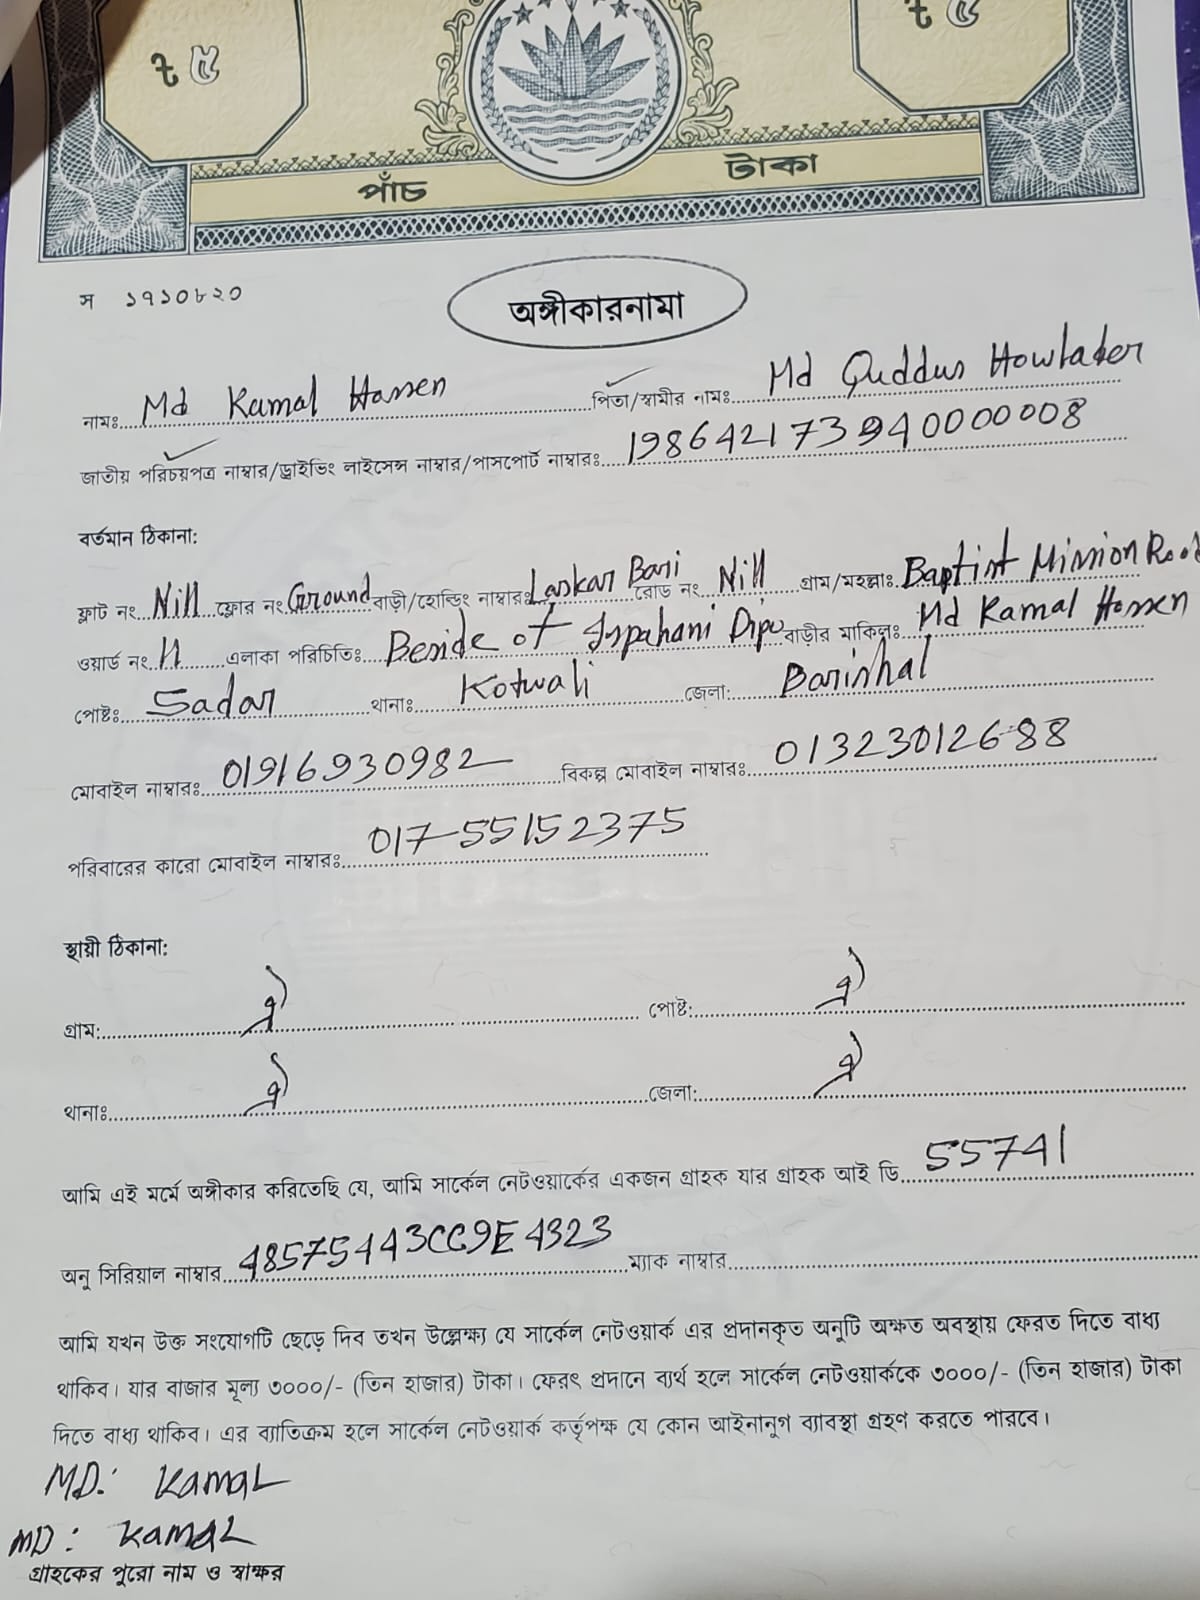 ৳ ৫
৳ ৫
পাঁচ টাকা
স ১৭১০৮২০
অঙ্গীকারনামা
নামঃ Md Kamal Hossen পিতা/স্বামীর নামঃ Md Quddus Howlader
জাতীয় পরিচয়পত্র নাম্বার/ড্রাইভিং লাইসেন্স নাম্বার/পাসপোর্ট নাম্বারঃ 19864217394000008
বর্তমান ঠিকানা:
ফ্লাট নং Nill ফ্লোর নং Ground বাড়ী/হোল্ডিং নাম্বারঃ Laskar Bari রোড নং Nill গ্রাম/মহল্লাঃ Baptist Mission Road
ওয়ার্ড নং 11 এলাকা পরিচিতিঃ Beside of Ispahani Dipo বাড়ীর মালিকঃ Md Kamal Hossen
পোষ্টঃ Sadar থানাঃ Kotwali জেলা: Barishal
মোবাইল নাম্বারঃ 01916930982 বিকল্প মোবাইল নাম্বারঃ 01323012688
পরিবারের কারো মোবাইল নাম্বারঃ 017-55152375
স্থায়ী ঠিকানা:
গ্রাম: ঐ পোষ্ট: ঐ
থানাঃ ঐ জেলা: ঐ
আমি এই মর্মে অঙ্গীকার করিতেছি যে, আমি সার্কেল নেটওয়ার্কের একজন গ্রাহক যার গ্রাহক আই ডি 55741
অনু সিরিয়াল নাম্বার 48575443CC9E4323 ম্যাক নাম্বার
আমি যখন উক্ত সংযোগটি ছেড়ে দিব তখন উল্লেক্ষ্য যে সার্কেল নেটওয়ার্ক এর প্রদানকৃত অনুটি অক্ষত অবস্থায় ফেরত দিতে বাধ্য
থাকিব। যার বাজার মূল্য ৩০০০/- (তিন হাজার) টাকা। ফেরৎ প্রদানে ব্যর্থ হলে সার্কেল নেটওয়ার্ককে ৩০০০/- (তিন হাজার) টাকা
দিতে বাধ্য থাকিব। এর ব্যাতিক্রম হলে সার্কেল নেটওয়ার্ক কর্তৃপক্ষ যে কোন আইনানুগ ব্যাবস্থা গ্রহণ করতে পারবে।
MD: Kamal
MD: Kamal
গ্রাহকের পুরো নাম ও স্বাক্ষর